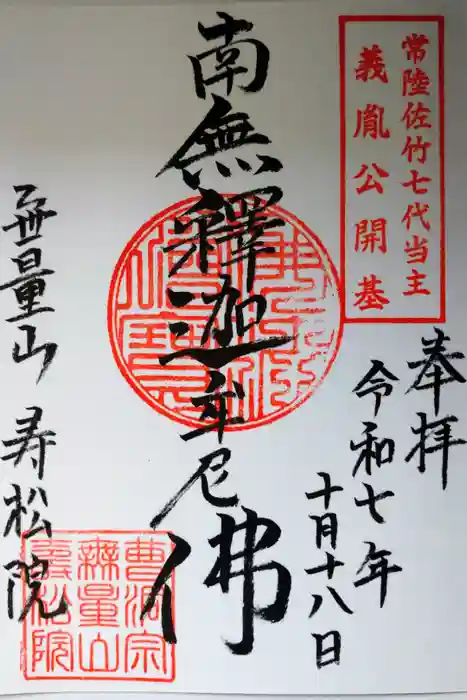 常陸佐竹七代当主
義胤公開基
奉拝
令和七年
十月十八日
南無釋迦牟尼佛
無量山 寿松院
曹洞宗
無量山
壽松院